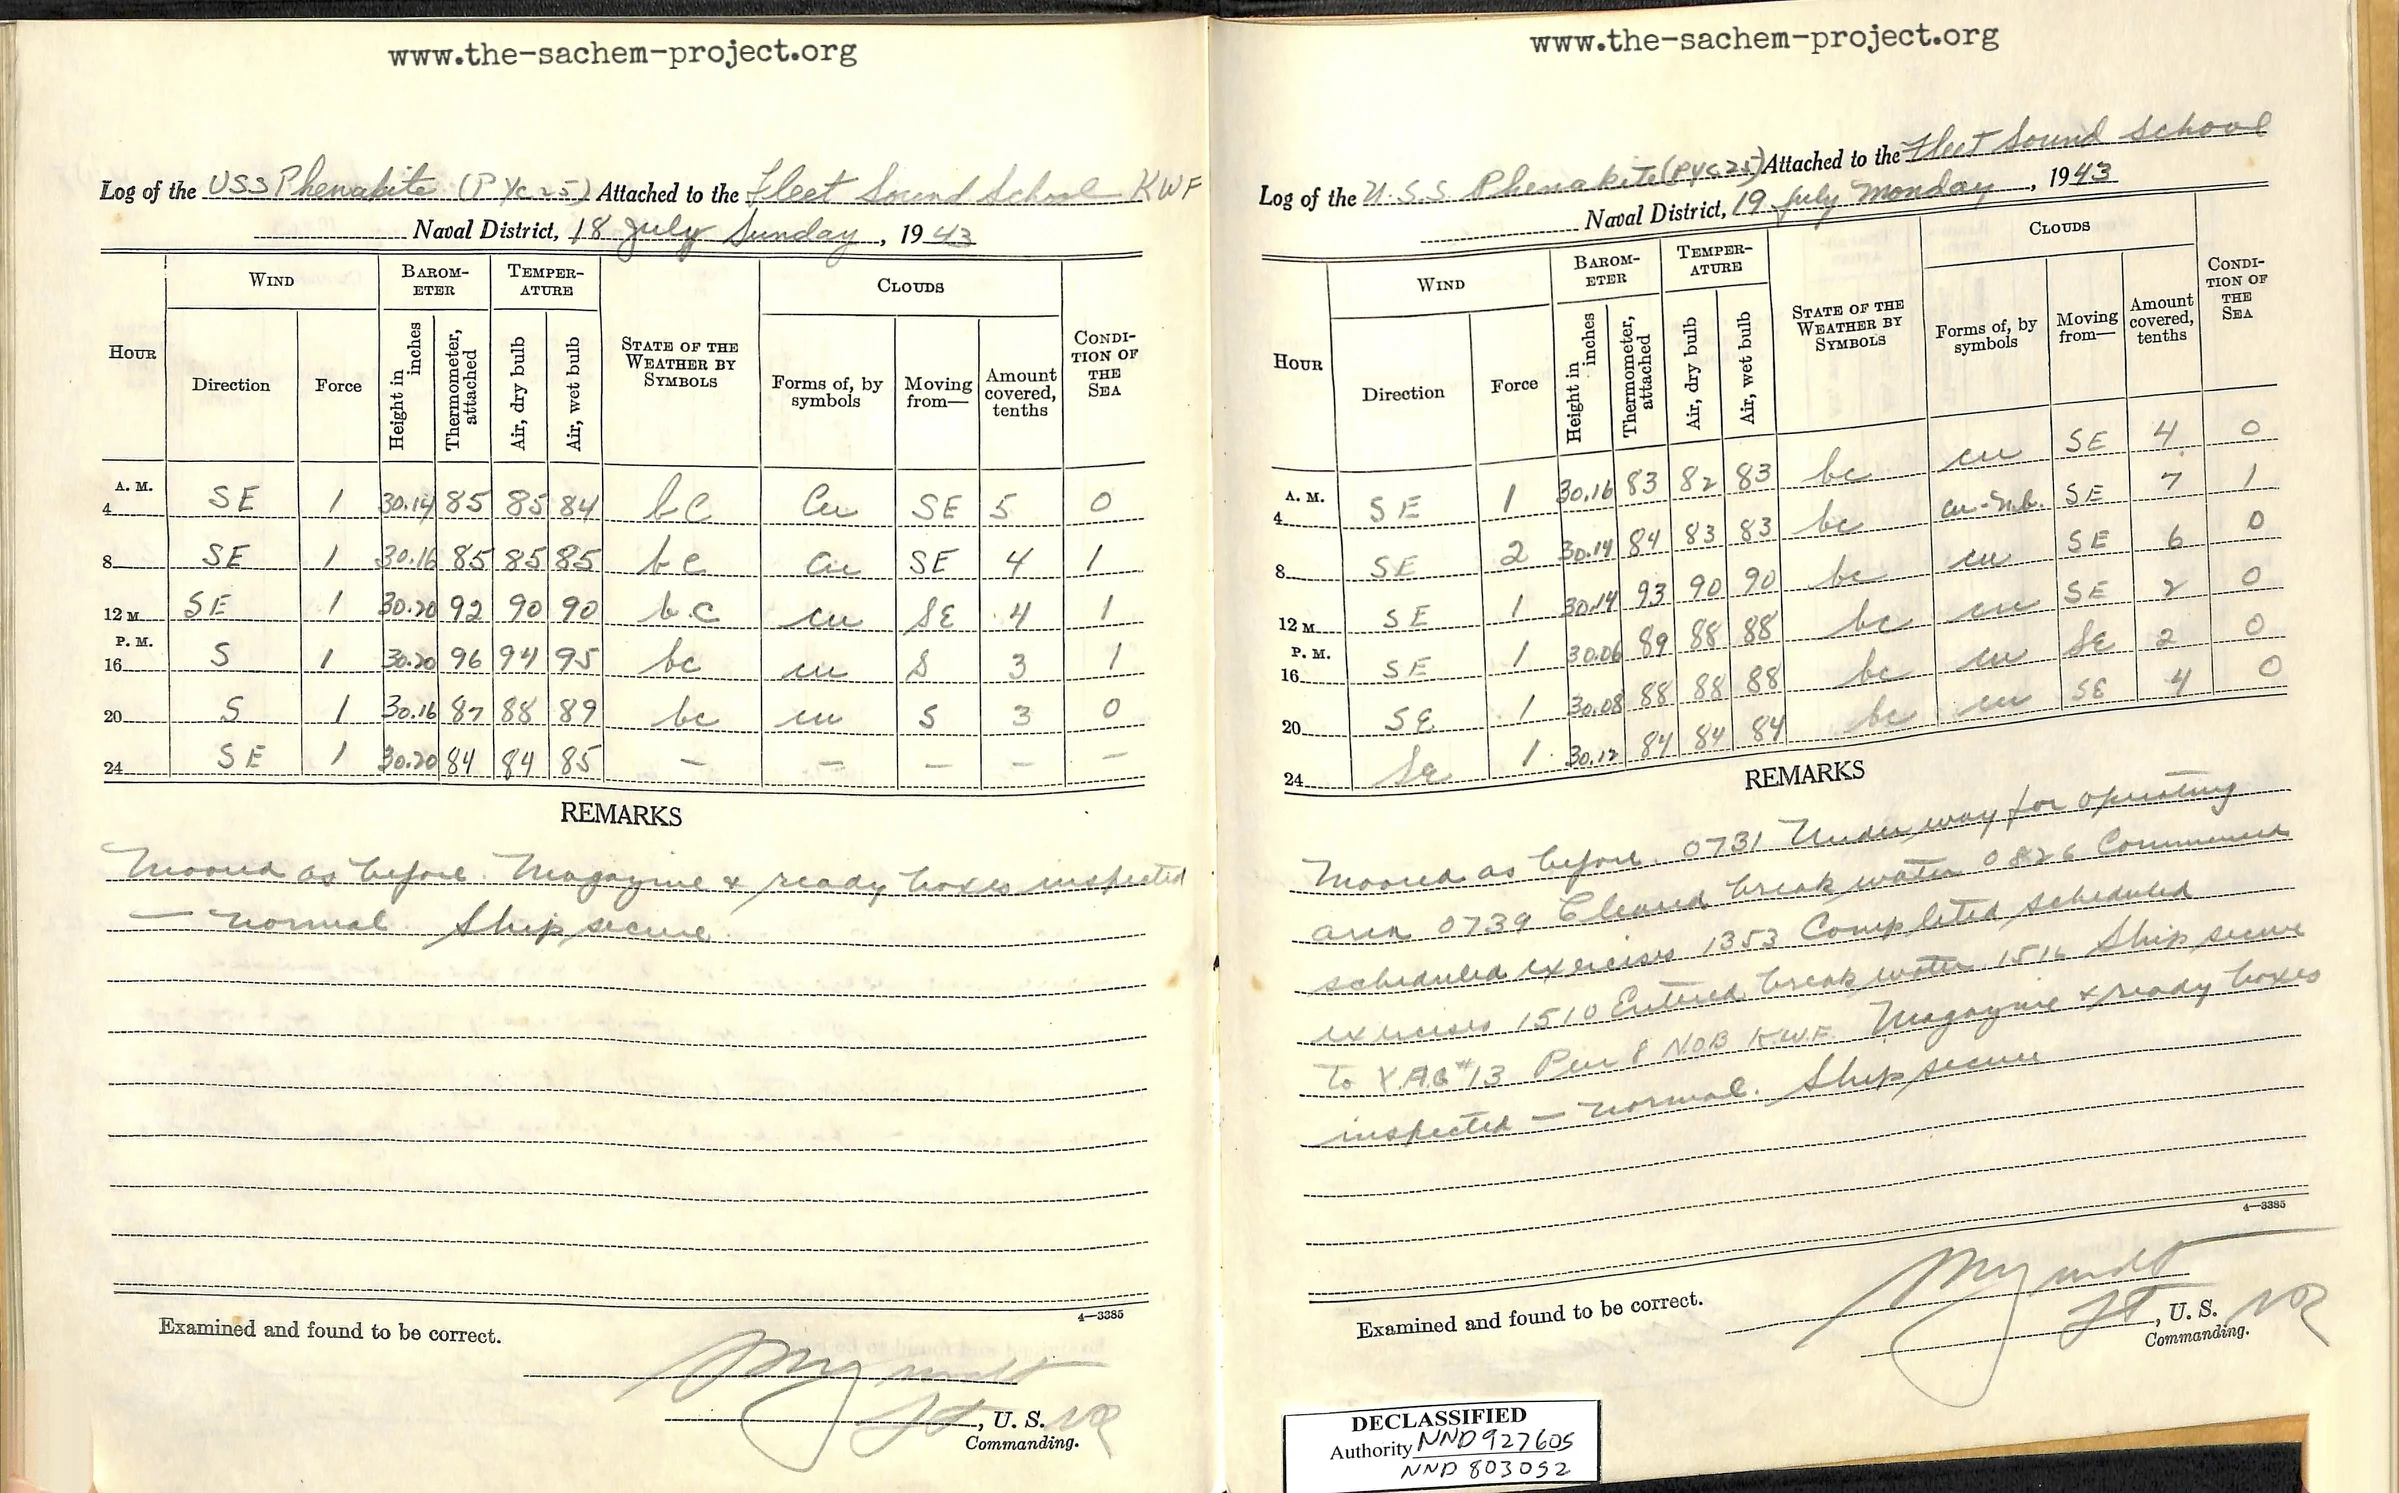 www.the-sachem-project.org
Log of the USS Phenakite (PYc25) Attached to the Fleet Sound School KWF
Naval District, 18 July Sunday, 1943
HOUR
WIND
BAROM-
ETER
TEMPER-
ATURE
STATE OF THE
WEATHER BY
SYMBOLS
CLOUDS
CONDI-
TION OF
THE
SEA
Direction
Force
Height in
inches
Thermometer,
attached
Air, dry bulb
Air, wet bulb
Forms of, by
symbols
Moving
from—
Amount
covered,
tenths
A. M.
4 SE 1 30.14 85 85 84 bc Cu SE 5 0
8 SE 1 30.16 85 85 85 bc Cu SE 4 1
12 M SE 1 30.20 92 90 90 b.c cu SE 4 1
P. M.
16 S 1 30.20 96 94 95 bc cu S 3 1
20 S 1 30.16 87 88 89 bc cu S 3 0
24 SE 1 30.20 84 84 85 — — — — —
REMARKS
Moored as before. Magazine & ready boxes inspected
— normal. Ship secure.
4—3385
Examined and found to be correct.
Lt, U. S. NR
Commanding.
www.the-sachem-project.org
Log of the U.S.S Phenakite (PYc25) Attached to the Fleet Sound School
Naval District, 19 July Monday, 1943
HOUR
WIND
BAROM-
ETER
TEMPER-
ATURE
STATE OF THE
WEATHER BY
SYMBOLS
CLOUDS
CONDI-
TION OF
THE
SEA
Direction
Force
Height in
inches
Thermometer,
attached
Air, dry bulb
Air, wet bulb
Forms of, by
symbols
Moving
from—
Amount
covered,
tenths
A. M.
4 SE 1 30.16 83 82 83 bc cu SE 4 0
8 SE 2 30.14 84 83 83 bc cu-nb. SE 7 1
12 M SE 1 30.14 93 90 90 bc cu SE 6 0
P. M.
16 SE 1 30.06 89 88 88 bc cu SE 2 0
20 SE 1 30.08 88 88 88 bc cu SE 2 0
24 SE 1 30.12 84 84 84 bc cu SE 4 0
REMARKS
Moored as before. 0731 Under way for operating
area 0739 Cleared break water 0826 Commenced
scheduled exercises 1353 Completed scheduled
exercises 1510 Entered break water 1516 Ship secure
to Y.A.G #13 Pier 8 NOB K.W.F. Magazine & ready boxes
inspected — normal. Ship secure
4—3385
Examined and found to be correct.
Lt, U. S. NR
Commanding.
DECLASSIFIED
Authority NND 927605
NND 803052